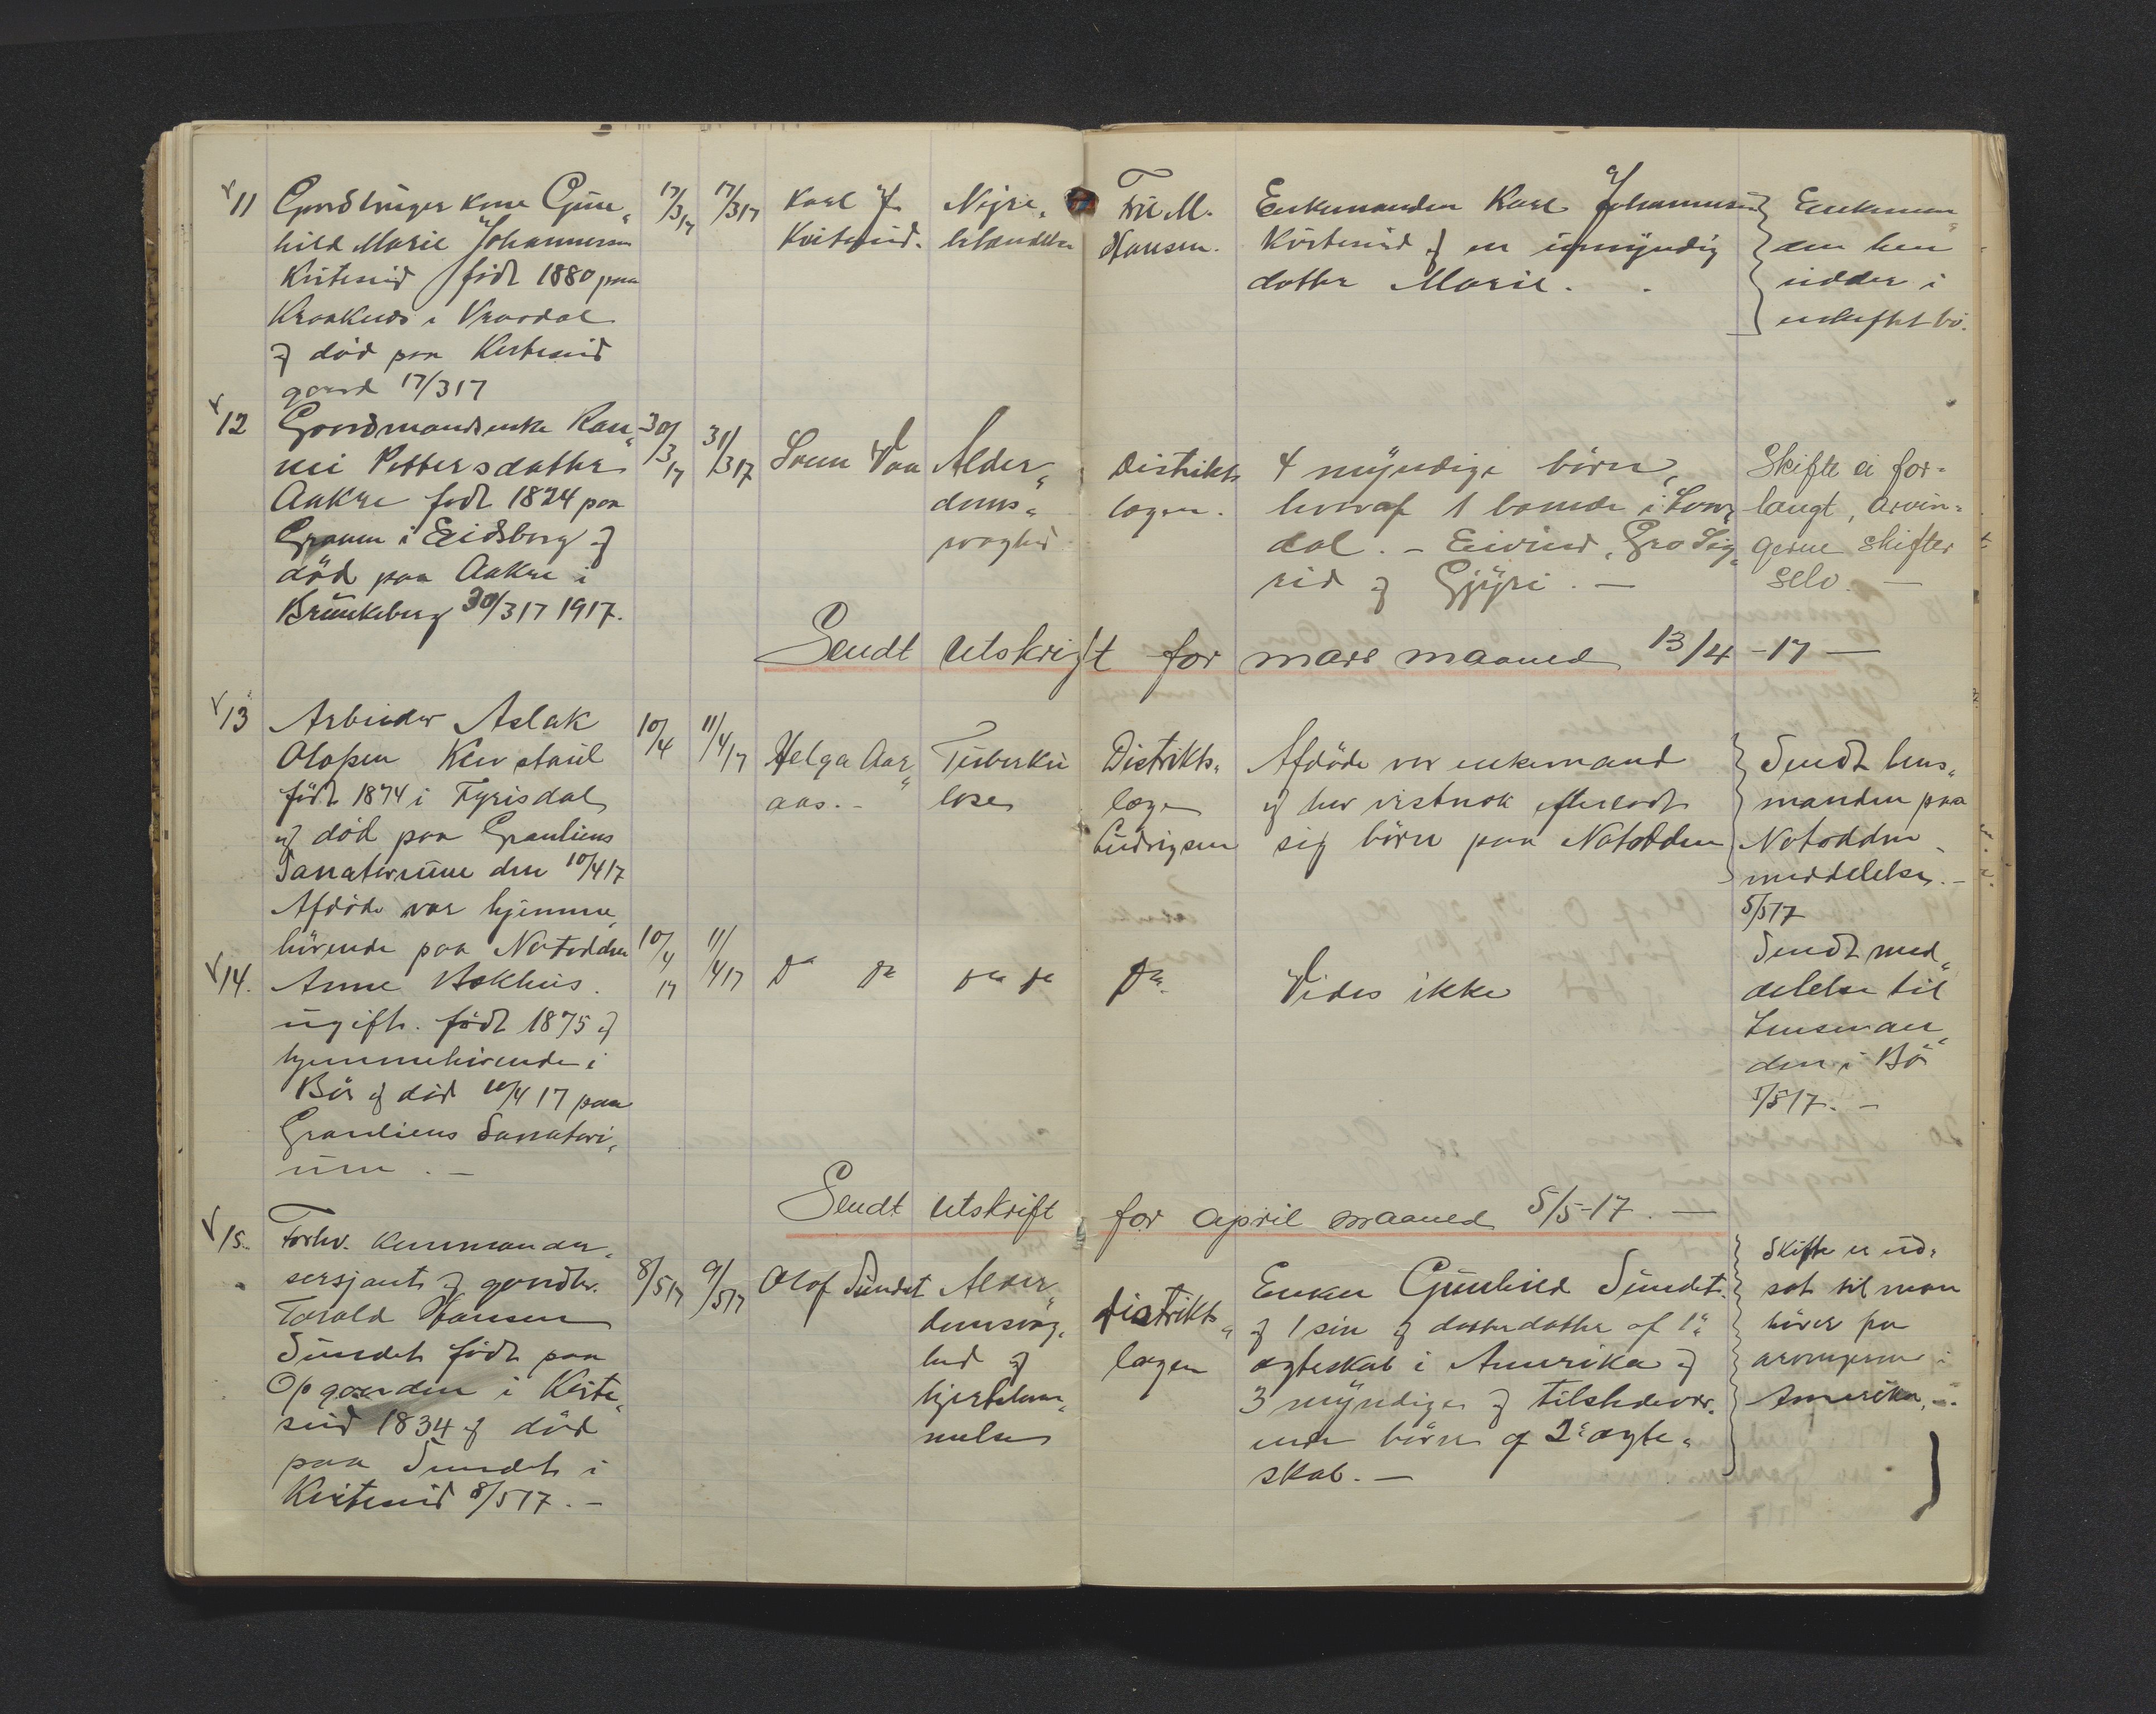 11 Gaardbruger kone Gun„
hild Marie Johannessen
Kviteseid født 1880 paa
Kraakeness i Vraadal
og död paa Kviteseid
gaard 17/3 17
17/3 17
17/3 17
Karl J.
Kviteseid.
Nyre„
betændelse
Frk M.
Hansen.
Enkemanden Karl Johannesen
Kviteseid og en umyndig
datter Marie.
Enkeman„
den hen
sidder i
uskiftet bo.
12 Gaardmandsenke Ran„
nei Pettersdatter
Aakre født 1824 paa
Graven i Eidsborg og
död paa Aakre i
Brunkeberg 30/3 17 1917.
30/3 17
31/3 17
Svein Vaa
Alder„
doms„
svaghed
Distrikts
lægen.
4 myndige börn,
hvoraf 1 boende i Laur„
dal. - Eivind, Gro Sig„
rid og Gjyri. —
Skifte ei for=
langt, arvin=
gerne skifter
selv. —
Sendt utskrift for mars maaned 13/4 -17 —
13 Arbeider Aslak
Olafsen
født 1874 i Fyrisdal
og död paa Granliens
Sanatorium den 10/4 17
Afdöde var hjemme„
hörende paa Notodden
10/4
11/4 17
Helga Aar„
aas. -
Tuberku
lose
Distrikts„
læge
Ludrigsen
Afdöde var enkemand
og har vistnok efterladt
sig börn paa Notodden
Sendt lens„
manden paa
Notodden
meddelelse. -
5/5 17
14. Anne Bokhus.
ugift. født 1875 og
hjemmehörende i
Bö og död 10/4 17 paa
Granliens Sanatori„
um. —
10/4 17
11/4 17
Do do
do do
Do.
Vides ikke
Sendt med„
delelse til
Lensman„
den i Bö
5/5 17. -
Sendt utskrift for april maaned 5/5-17. —
15. Forhv. Kommander„
sersjant og gaardbr.
Torald Hansen
Sundet födt paa
Opgaarden i Kvite„
seid 1834 og död
paa Sundet i
Kviteseid 8/5 17. -
8/5 17
9/5 17
Olof Sundet
Alder„
domssvag„
hed og
hjertelam„
melse
Distrikts„
lægen
Enken Gunhild Sundet.
og 1 sön og datterdatter af 1ste
ægteskab i Amerika og
3 myndige og tilstedevær.
ende börn af 2det ægte„
skab. —
Skifte er ud„
sat til man
hörer fra
arvingerne i
Amerika. -